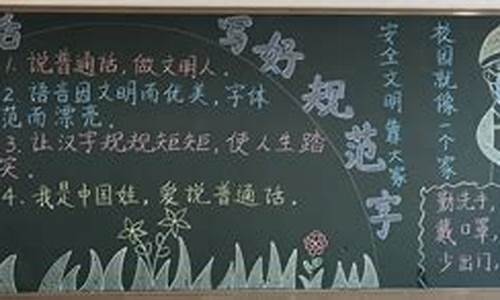 话
写好规范字
1. 说普通话，做文明人。
2 语言因文明而优美，字体
范而漂亮。
3. 让汉字规规矩矩，使人生踏
实。
4. 我是中国娃，爱说普通话。
安全文明靠大家
校园就像一个家
勤洗手
戴口罩
少出门，